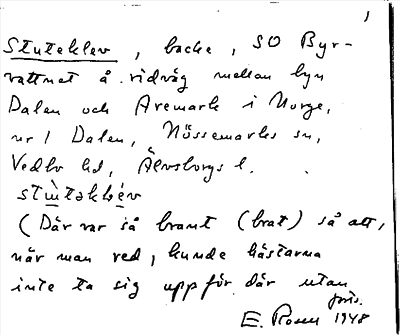 1
Stuteklev, backe, SO Byr-
vattnet å ridväg mellan byn
Dalen och Aremark i Norge,
nr 1 Dalen, Nössemarks sn,
Vedbo hd, Älvsborgs l.
(Där var så brant (brat) så att,
när man red, kunde hästarna
inte ta sig uppför där utan
E. Rosen 1948